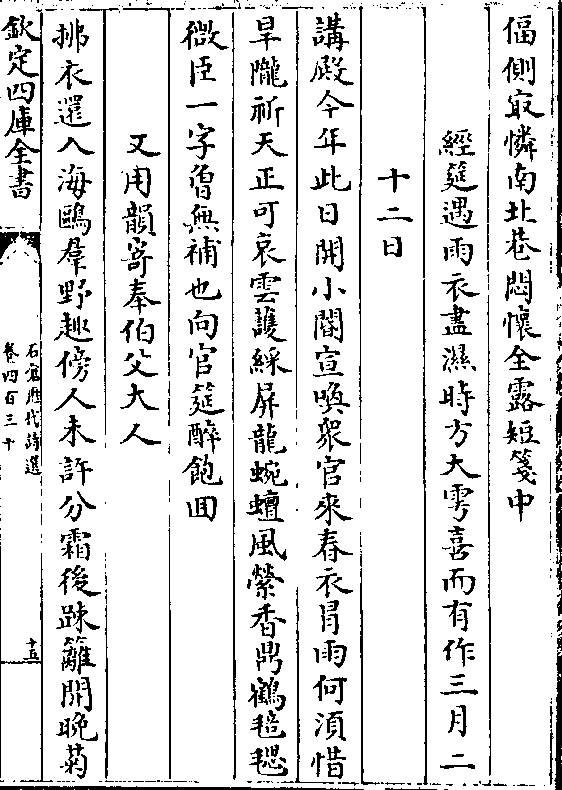 偪側㝡憐南北巷悶懷全露短箋中
經筵遇雨衣盡濕時方大雩喜而有作三月二
十二日
講殿今年此日開小閤宣喚衆官來春衣冐雨何湏惜
旱隴祈天正可哀雲護綵屏龍蜿蟺風縈香鼎鶴毰毸
微臣一字曽無補也向官筵醉飽囬
又用韻寄奉伯父大人
拂衣還入海鷗羣野趣傍人未許分霜後踈籬開晚菊
欽定四庫全書
石倉歴代詩選
卷四百三十
十五